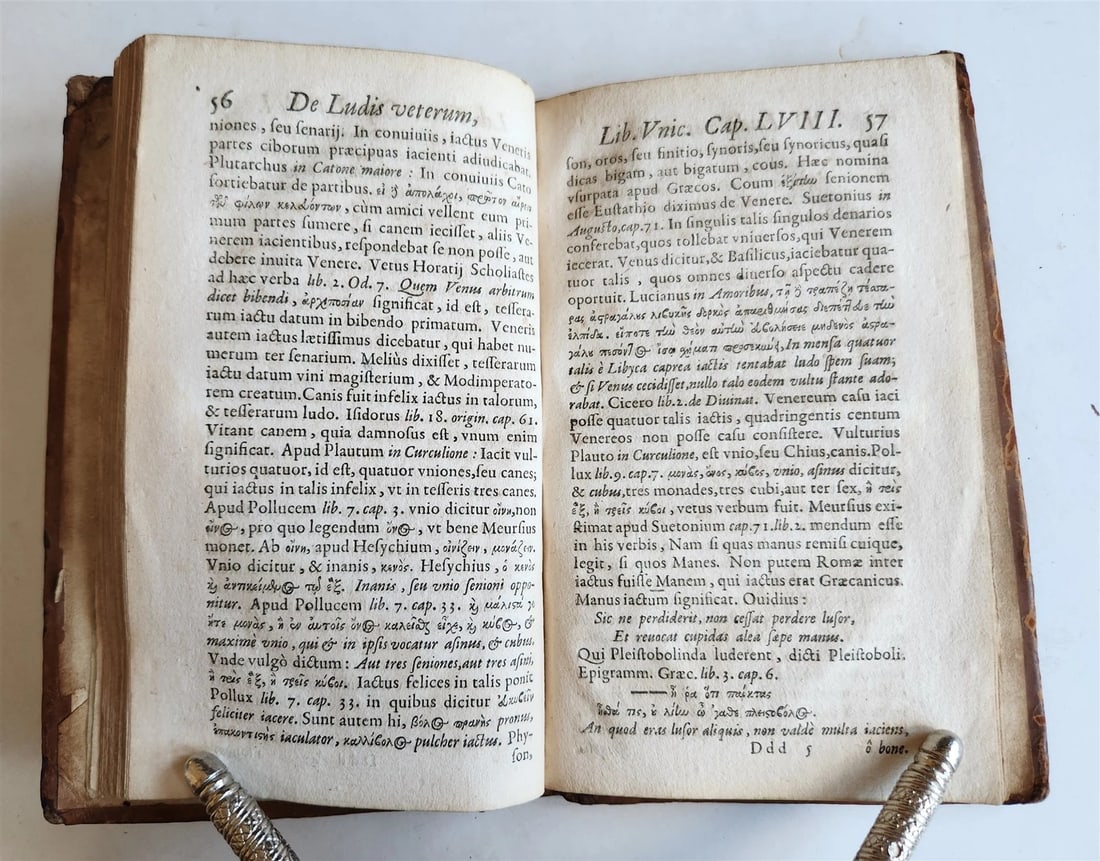 56 De Ludis veterum,
niones, ſeu ſenarij. In conuiuiis, iactus Veneris
partes ciborum præcipuas iacienti adiudicabat.
Plutarchus in Catone maiore : In conuiuiis Cato
ſortiebatur de partibus. εἰ δὲ ἀπολάχοι,
τῶν φίλων κελδόντων, cùm amici vellent eum pri-
mum partes ſumere, ſi canem ieciſſet, aliis Ve-
nerem iacientibus, reſpondebat ſe non poſſe, aut
debere inuita Venere. Vetus Horatij Scholiaſtes
ad hæc verba lib. 2. Od. 7. Quem Venus arbitrum
dicet bibendi, ἀρχιποσίαν significat, id eſt, teſſera-
rum iactu datum in bibendo primatum. Veneris
autem iactus lætiſſimus dicebatur, qui habet nu-
merum ter ſenarium. Meliùs dixiſſet, teſſerarum
iactu datum vini magiſterium, & Modimperato-
rem creatum. Canis fuit infelix iactus in talorum,
& teſſerarum ludo. Iſidorus lib. 18. origin. cap. 61.
Vitant canem, quia damnoſus eſt, vnum enim
ſignificat. Apud Plautum in Curculione : Iacit vul-
turios quatuor, id eſt, quatuor vniones, ſeu canes;
qui iactus in talis infelix, vt in teſſeris tres canes.
Apud Pollucem lib. 7. cap. 3. vnio dicitur οἴνη, non
pro quo legendum ὄνος, vt bene Meurſius
monet. Ab οἴνη, apud Heſychium, οἰνίζειν, μονάζειν.
Vnio dicitur, & inanis, κενός. Heſychius, ὁ κενὸς
καὶ ἀντικείμενος τῷ ἕξ. Inanis, ſeu vnio ſenioni oppo-
nitur. Apud Pollucem lib. 7. cap. 33. καὶ μάλιστά γε
ἥτε μονὰς, ἣ ἐν αὐτοῖς ὄνος καλεῖσθ εἶχε, καὶ κύβος, &
maximè vnio, qui & in ipſis vocatur aſinus, & cubus.
Vnde vulgò dictum : Aut tres ſeniones, aut tres aſini,
ἢ τρὶς ἓξ, ἢ τρεῖς κύβοι. Iactus felices in talis ponit
Pollux lib. 7. cap. 33. in quibus dicitur εὐκυβεῖν
feliciter iacere. Sunt autem hi, βόλος πρανὴς pronus,
iaculator, καλλίβολος pulcher iactus. Phy-
ſon,
Lib. Vnic. Cap. LVIII. 57
ſon, oros, ſeu finitio, ſynoris, ſeu ſynoricus, quaſi
dicas bigam, aut bigatum, cous. Hæc nomina
vſurpata apud Græcos. Coum ſenionem
eſſe Euſtathio diximus de Venere. Suetonius in
Auguſto, cap. 71. In ſingulis talis ſingulos denarios
conferebat, quos tollebat vniuerſos, qui Venerem
iecerat. Venus dicitur, & Baſilicus, iaciebatur qua-
tuor talis, quos omnes diuerſo aſpectu cadere
oportuit. Lucianus in Amoribus, τῇ δὲ τραπέζῃ τέσσα-
ρας ἀστραγάλους λιβυκῆς δορκὸς ἀπαριθμήσας διεπέττευε τὴν
ἐλπίδα. εἴποτε τὴν θεὸν αὐτὴν εὐβολήσειε μηδενὸς ἀστρα-
γάλου πεσόντος ἴσῳ σχήματι προσεκύνει, In menſa quatuor
talis è Libyca caprea iactis tentabat ludo ſpem ſuam;
& ſi Venus cecidiſſet, nullo talo eodem vultu ſtante ado-
rabat. Cicero lib. 2. de Diuinat. Venereum caſu iaci
poſſe quatuor talis iactis, quadringentis centum
Venereos non poſſe caſu conſiſtere. Vulturius
Plauto in Curculione, eſt vnio, ſeu Chius, canis. Pol-
lux lib. 9. cap. 7. μονὰς, ὄνος, κύβος, vnio, aſinus dicitur,
& cubus, tres monades, tres cubi, aut ter ſex, ἢ τρὶς
ἓξ, ἢ τρεῖς κύβοι, vetus verbum fuit. Meurſius exi-
ſtimat apud Suetonium cap. 71. lib. 2. mendum eſſe
in his verbis, Nam ſi quas manus remiſi cuique,
legit, ſi quos Manes. Non putem Romæ inter
iactus fuiſſe Manem, qui iactus erat Græcanicus.
Manus iactum ſignificat. Ouidius :
Sic ne perdiderit, non ceſſat perdere luſor,
Et reuocat cupidas alea ſæpe manus.
Qui Pleiſtobolinda luderent, dicti Pleiſtoboli.
Epigramm. Græc. lib. 3. cap. 6.
—— ἦ ῥα ὅτι παίκτας
ἦσθά τις, λίην ὦ ’γαθὲ πλειστοβόλος.
An quod eras luſor aliquis, non valdè multa iaciens,
Ddd 5 ô bone.